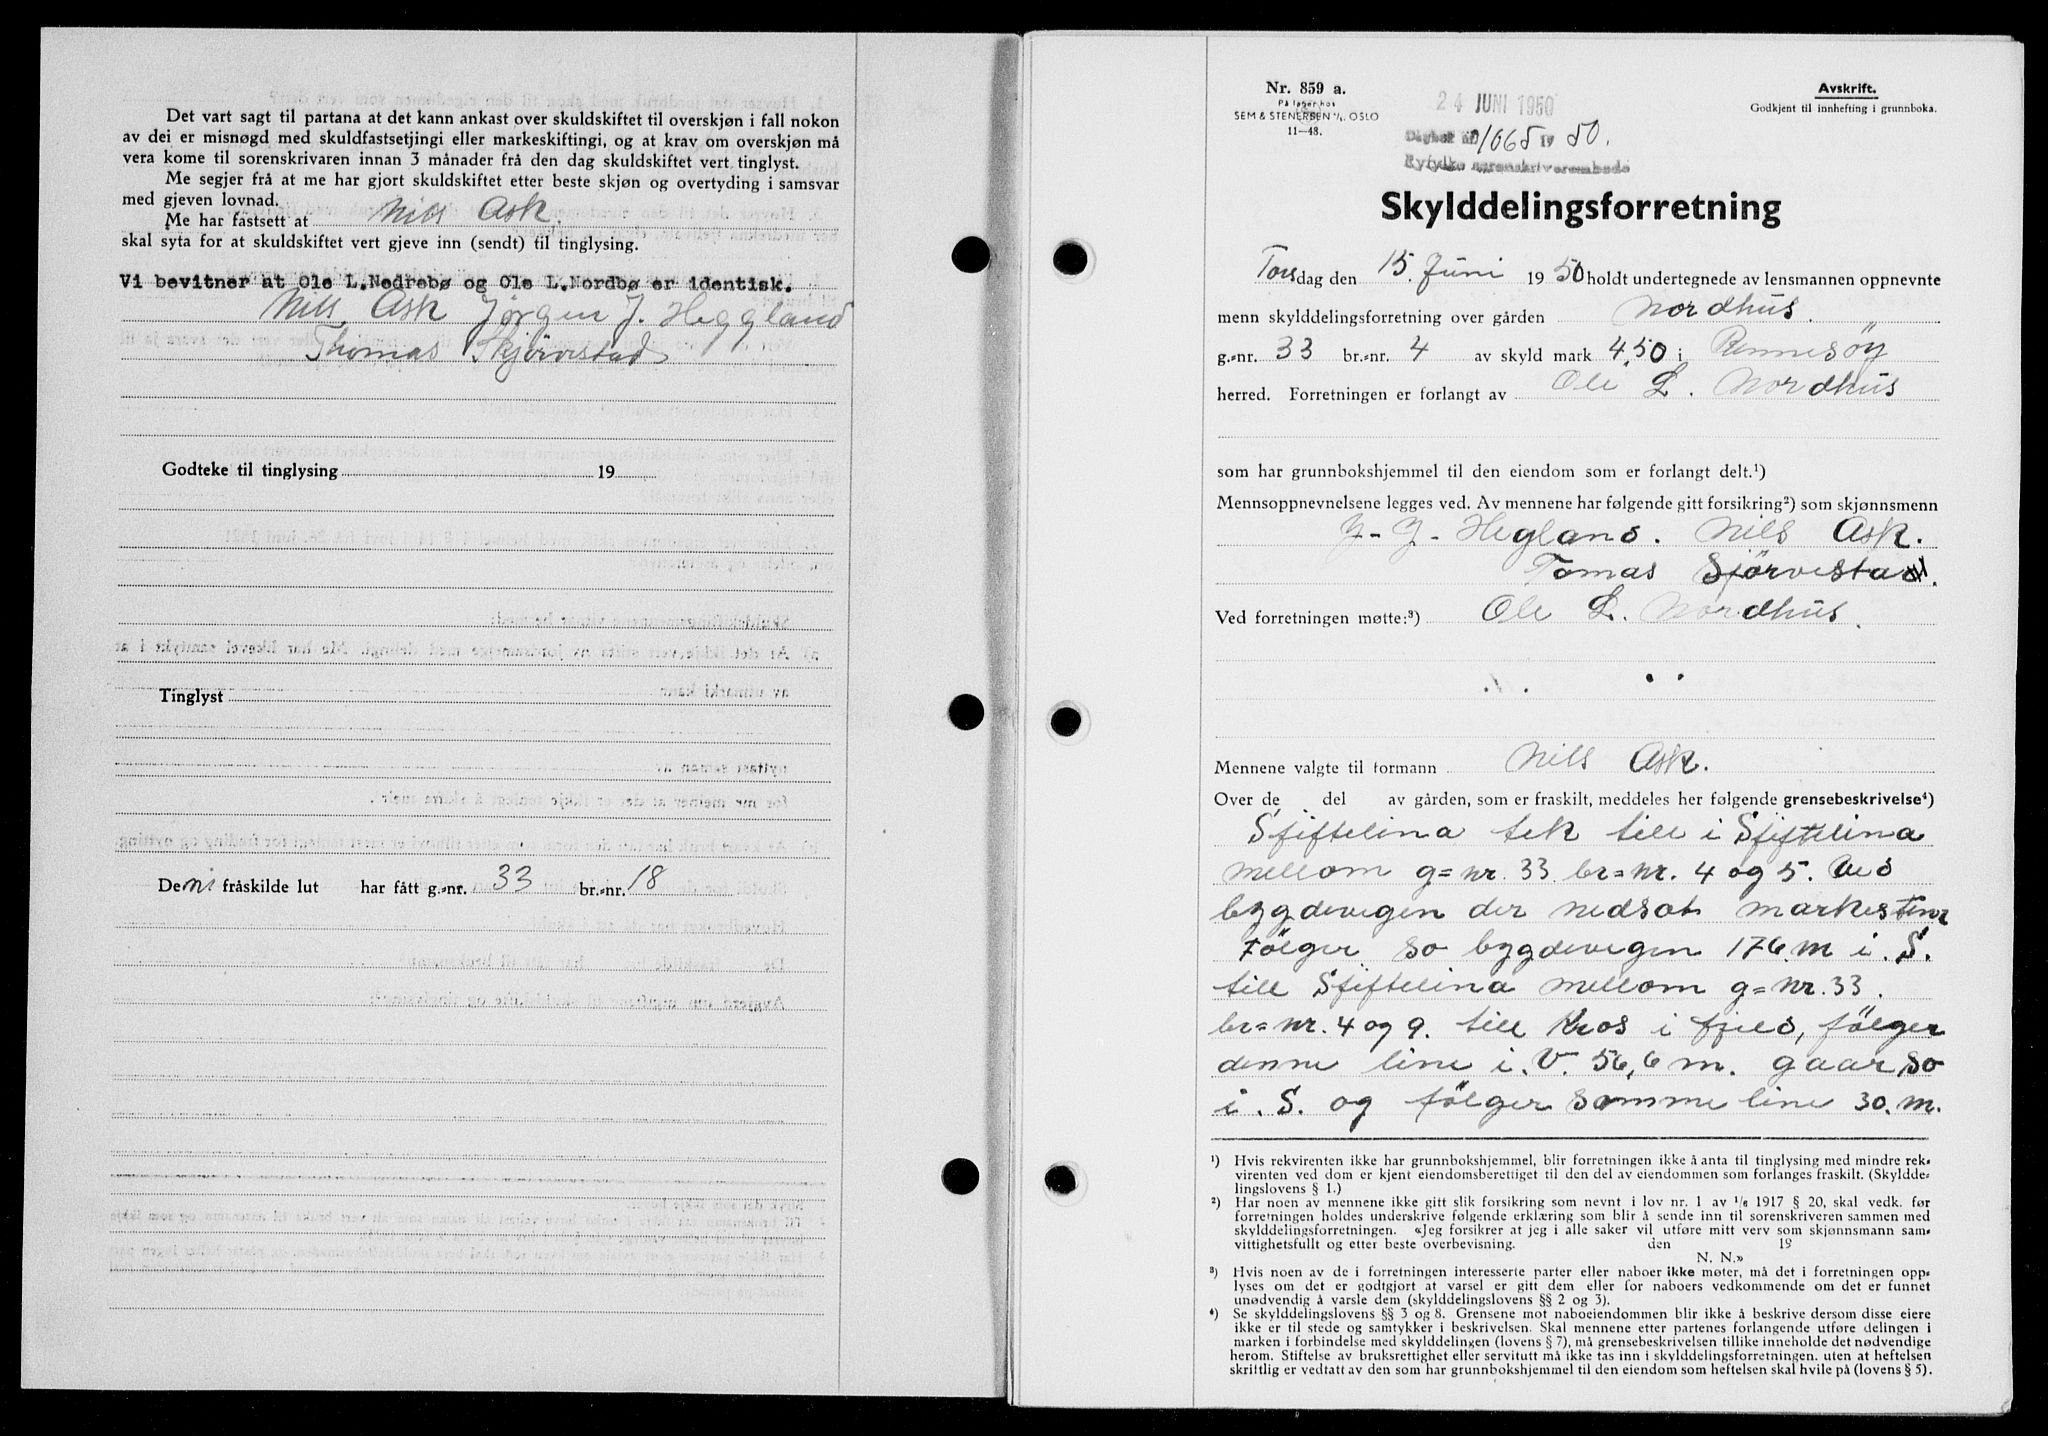 Det vart sagt til partana at det kann ankast over skuldskiftet til overskjøn i fall nokon
av dei er misnøgd med skuldfastsetjingi eller markeskiftingi, og at krav om overskjøn må
vera kome til sorenskrivaren innan 3 månader frå den dag skuldskiftet vert tinglyst.
Me segjer frå at me har gjort skuldskiftet etter beste skjøn og overtyding i samsvar
med gjeven lovnad.
Me har fastsett at Nils Ask.
skal syta for at skuldskiftet vert gjeve inn (sendt) til tinglysing.
Vi bevitner at Ole L.Nedrebø og Ole L.Nordbø er identisk.
Nils Ask Jørgen J. Heggland
Thomas Skjørvestad
Godteke til tinglysing 19
Tinglyst
De ni fråskilde lut har fått g.-nr. 33 br.-nr. 18
Nr. 859 a.
På lager hos
SEM & STENERSEN A/S, OSLO
11—48.
24 JUNI 1950
Dagbok nr 1065 19 50.
Ryfylke sorenskriverembede
Avskrift.
Godkjent til innhefting i grunnboka.
Skylddelingsforretning
Torsdag den 15. Juni 1950 holdt undertegnede av lensmannen oppnevnte
menn skylddelingsforretning over gården Nordhus.
g.-nr. 33 br.-nr. 4 av skyld mark 4,50 i Rennesöy
herred. Forretningen er forlangt av Ole L. Nordhus
som har grunnbokshjemmel til den eiendom som er forlangt delt.¹)
Mennsoppnevnelsene legges ved. Av mennene har følgende gitt forsikring²) som skjønnsmenn
J. J. Hegland. Nils Ask.
Tomas Sjörvestad.
Ved forretningen møtte:³) Ole L. Nordhus.
Mennene valgte til formann Nils Ask.
Over de del av gården, som er fraskilt, meddeles her følgende grensebeskrivelse⁴)
Stiftelina tek till i Stiftelina
mellom g=nr. 33 br=nr. 4 og 5. Ved
bygdevegen der nedsat markestene
Fölger so bygdevegen 176 m i. S.
till Stiftelina mellom g=nr. 33.
br=nr. 4 og 9. till Kros i fjeld, fölger
denne line i. V. 56,6 m. gaar so
i. S. og fölger samme line 30. m.
¹) Hvis rekvirenten ikke har grunnbokshjemmel, blir forretningen ikke å anta til tinglysing med mindre rek-
virenten ved dom er kjent eiendomsberettiget til den del av eiendommen som forlanges fraskilt. (Skyldde-
lingslovens § 1.)
²) Har noen av mennene ikke gitt slik forsikring som nevnt i lov nr. 1 av 1/6 1917 § 20, skal vedk. før
forretningen holdes underskrive følgende erklæring som blir å sende inn til sorenskriveren sammen med
skylddelingsforretningen. «Jeg forsikrer at jeg i alle saker vil utføre mitt verv som skjønnsmann sam-
vittighetsfullt og etter beste overbevisning. den 19
N. N.»
³) Hvis noen av de i forretningen interesserte parter eller naboer ikke møter, må det i forretningen opp-
lyses om det er godtgjort at varsel er gitt dem eller for naboers vedkommende om det er funnet
unødvendig å varsle dem (skylddelingslovens §§ 2 og 3).
⁴) Se skylddelingslovens §§ 3 og 8. Grensene mot naboeiendommen blir ikke å beskrive dersom disse eiere
ikke er til stede og samtykker i beskrivelsen. Skal mennene etter partenes forlangende utføre delingen i
marken i forbindelse med skylddelingen (lovens § 7), må grensebeskrivelsen tillike inneholde det nødvendige
herom. Stiftelse av bruksrettighet eller servitutt må ikke tas inn i skylddelingsforretningen, uten at heftelsen
skriftlig er vedtatt av den som har grunnbokshjemmel til den eiendom som heftelsen skal hvile på (lovens § 5).